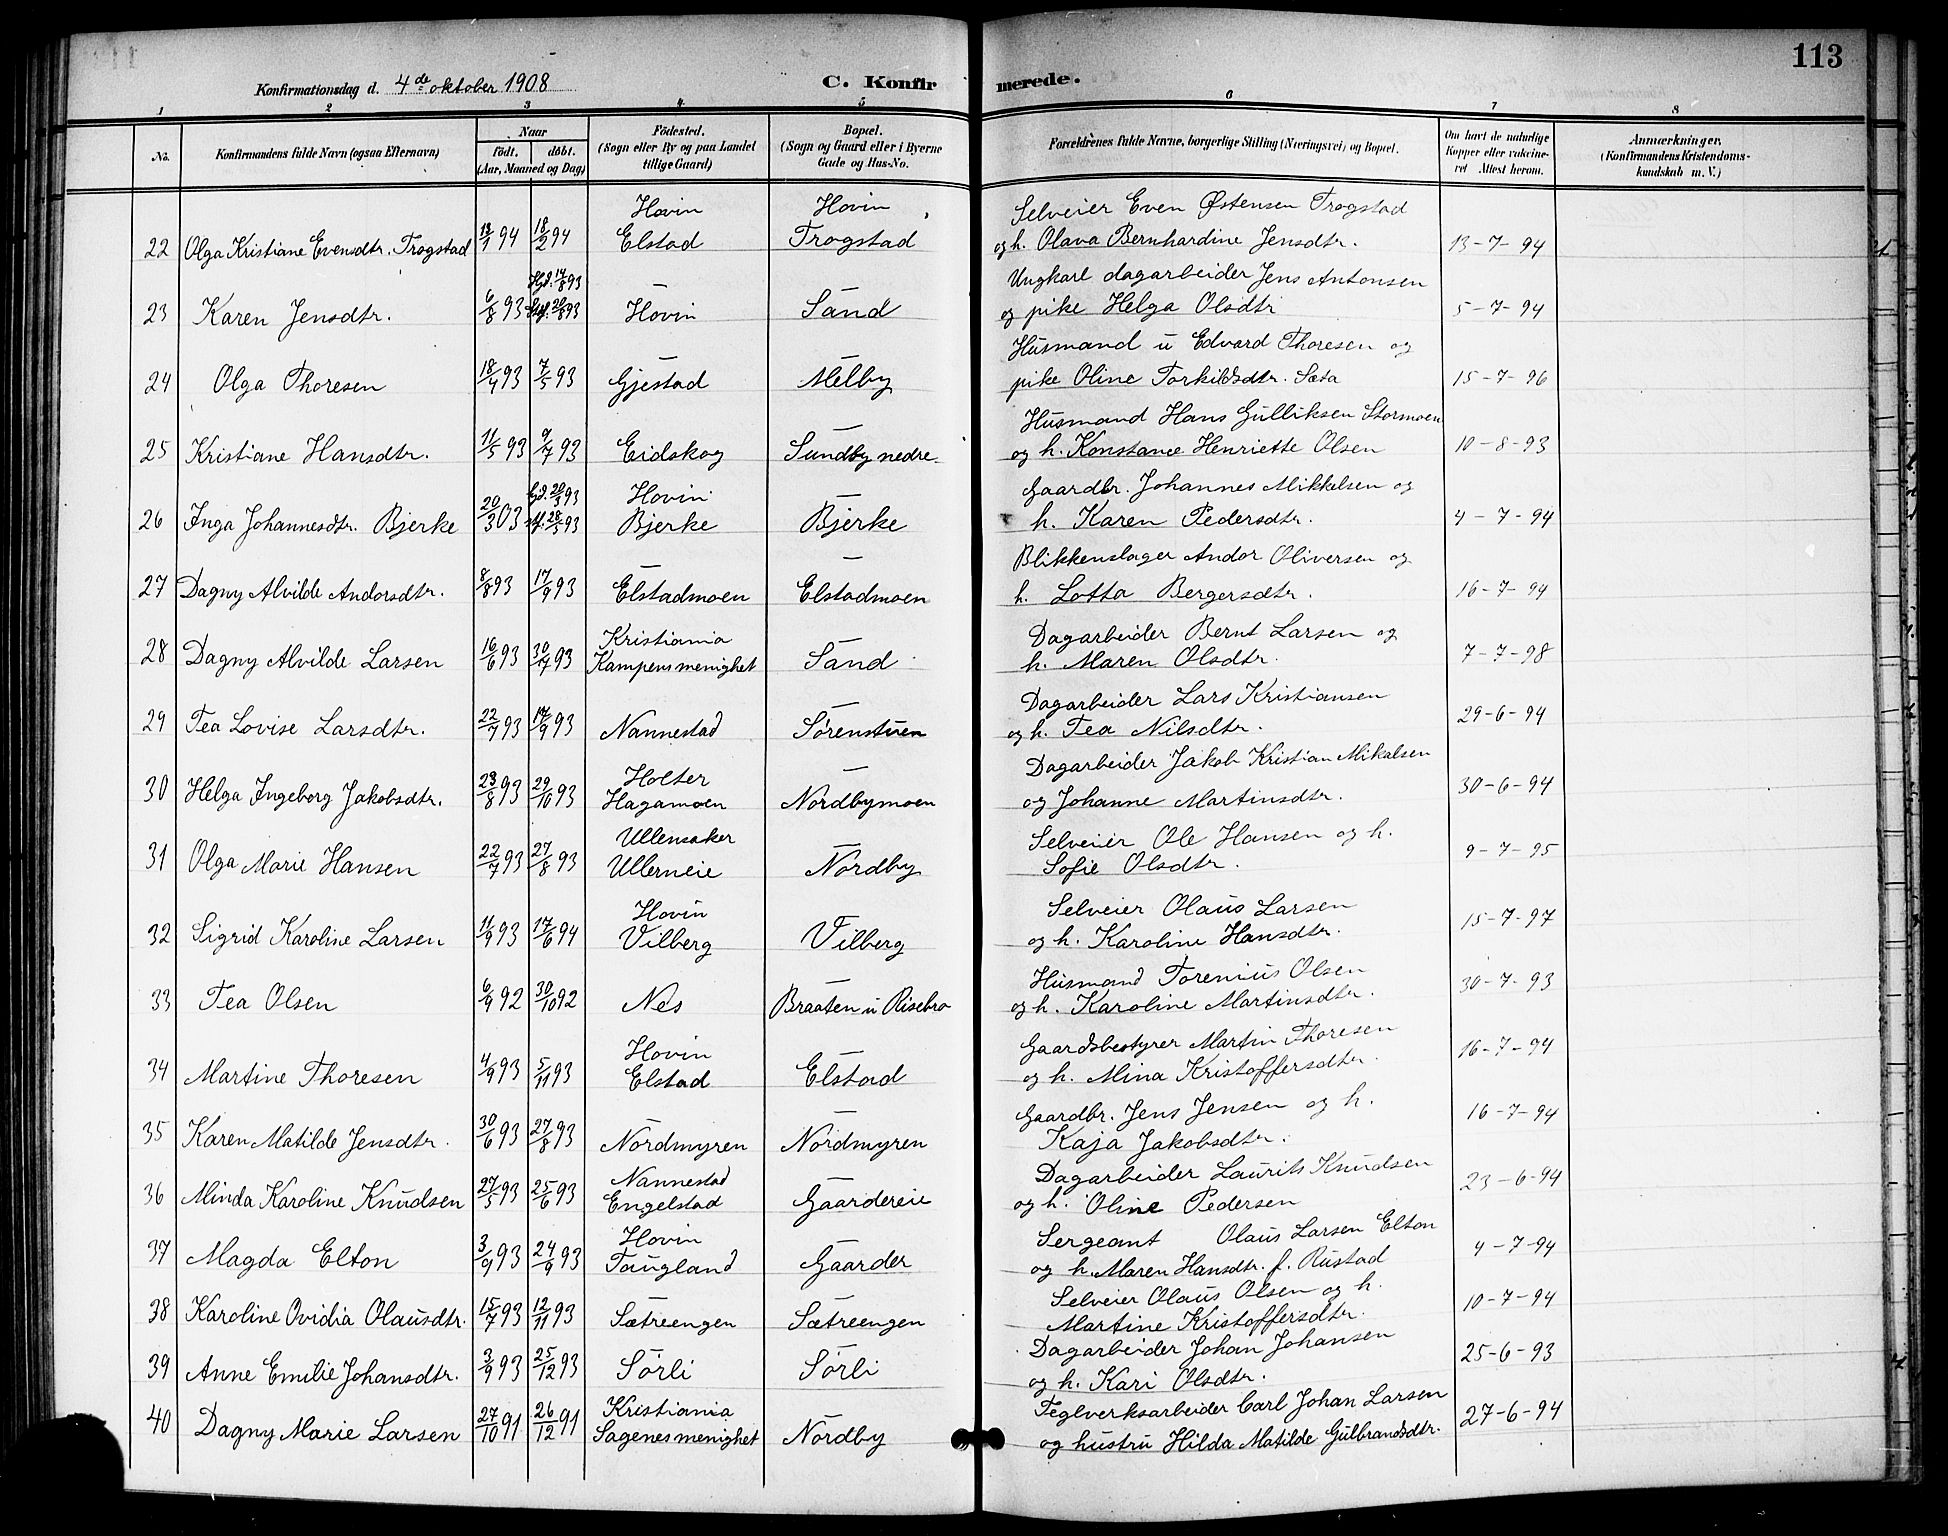 113
Konfirmationsdag d. 4de oktober 1908 C. Konfirmerede.
1 2 3 4 5 6 7 8
No. Konfirmandens fulde Navn (ogsaa Efternavn) Naar født. døbt. (Aar, Maaned og Dag) Fødested. (Sogn eller By og paa Landet tillige Gaard) Bopæl. (Sogn og Gaard eller i Byerne Gade og Hus-No. Forældrenes fulde Navne, borgerlige Stilling (Næringsvei) og Bopæl. Om havt de naturlige Kopper eller vakcineret Attest herom. Anmærkninger. (Konfirmandens Kristendomskundskab m. V.)
Hovin Hovin Selveier Even Østensen Trogstad
22 Olga Kristiane Evensdtr. Trogstad 18/2 94 Elstad Trogstad og h. Olava Bernhardine Jensdtr. 13-7-94
Ungkarl dagarbeider Jens Antonsen
23 Karen Jensdtr. 6/8 93 Hovin Sand og pike Helga Olsdtr 5-7-94
Husmand u Edvard Thoresen og
24 Olga Thoresen 18/4 93 7/5 93 Gjestad Melby pike Oline Torkildsdtr. Sæta 15-7-96
Husmand Hans Gulliksen Stormoen
25 Kristiane Hansdtr. 11/5 93 9/7 93 Eidskog Sundby nedre og h. Konstance Henriette Olsen 10-8-93
Hovin Gaardbr. Johannes Mikkelsen og
26 Inga Johannesdtr. Bjerke 20/3 03 Bjerke Bjerke h. Karen Pedersdtr. 4-7-94
Blikkenslager Andor Oliversen og
27 Dagny Alvilde Andorsdtr. 8/8 93 17/9 93 Elstadmoen Elstadmoen h. Lotta Bergersdtr. 16-7-94
Kristiania Dagarbeider Bernt Larsen og
28 Dagny Alvilde Larsen 16/6 93 30/7 93 Kampens menighet Sand h. Maren Olsdtr. 7-7-98
Dagarbeider Lars Kristiansen
29 Tea Lovise Larsdtr. 22/7 93 17/9 93 Nannestad Sørenstuen og h. Tea Nilsdtr. 29-6-94
Holter Dagarbeider Jakob Kristian Mikalsen
30 Helga Ingeborg Jakobsdtr. 23/8 93 29/10 93 Hagamoen Nordbymoen og Johanne Martinsdtr. 30-6-94
Ullensaker Selveier Ole Hansen og h.
31 Olga Marie Hansen 22/7 93 27/8 93 Ullerneie Nordby Sofie Olsdtr. 9-7-95
Hovin Selveier Olaus Larsen
32 Sigrid Karoline Larsen 11/9 93 17/6 94 Vilberg Vilberg og h. Karoline Hansdtr. 15-7-97
Husmand Torenius Olsen
33 Tea Olsen 6/9 92 30/10 92 Nes Braaten u Risebro og h. Karoline Martinsdtr. 30-7-93
Hovin Gaardsbestyrer Martin Thoresen
34 Martine Thoresen 4/9 93 5/11 93 Elstad Elstad og h. Mina Kristoffersdtr. 16-7-94
Gaardbr. Jens Jensen og h.
35 Karen Matilde Jensdtr. 30/6 93 27/8 93 Nordmyren Nordmyren Kaja Jakobsdtr. 16-7-94
Nannestad Dagarbeider Laurits Knudsen
36 Minda Karoline Knudsen 27/5 93 25/6 93 Engelstad Gaardereie og h. Oline Pedersen 23-6-94
Hovin Sergeant Olaus Larsen Elton
37 Magda Elton 3/9 93 24/9 93 Taugland Gaarder og h. Maren Hansdtr. f. Rustad 4-7-94
Selveier Olaus Olsen og h.
38 Karoline Ovidia Olausdtr. 15/7 93 12/11 93 Sætreengen Sætreengen Martine Kristoffersdtr. 10-7-94
Dagarbeider Johan Johansen
39 Anne Emilie Johansdtr. 3/9 93 25/12 93 Sörli Sörli og h. Kari Olsdtr. 25-6-93
Kristiania Teglverksarbeider Carl Johan Larsen
40 Dagny Marie Larsen 27/10 91 26/12 91 Sagenes menighet Nordby og hustru Hilda Matilde Gulbrandsdtr. 27-6-94